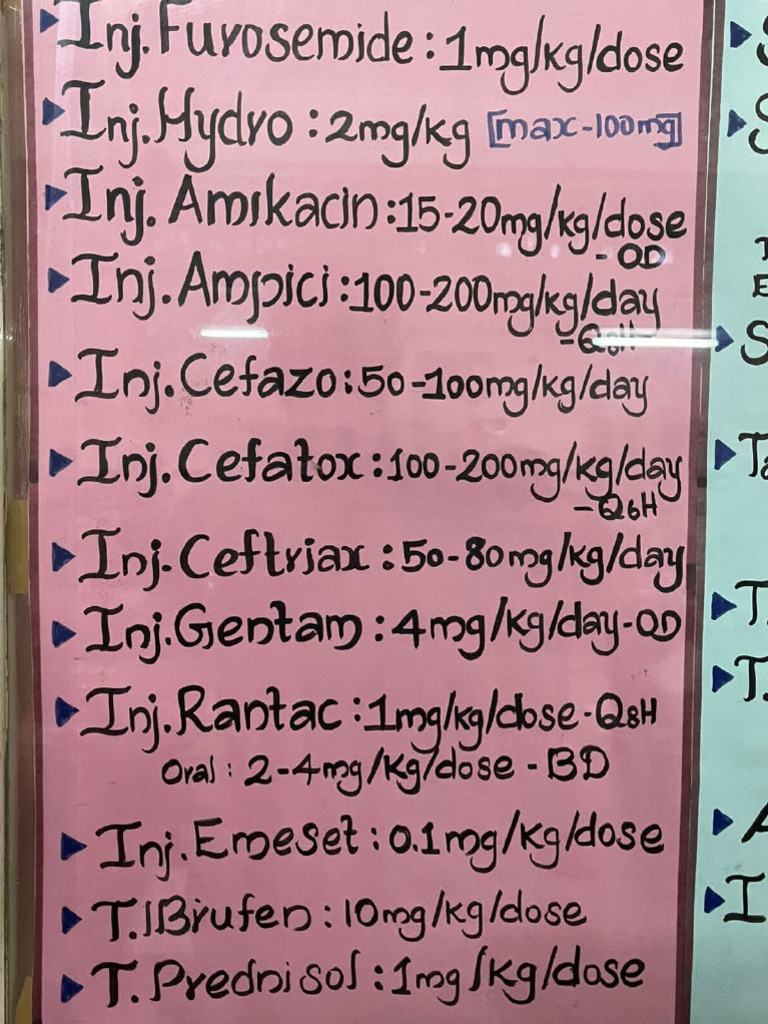 Inj. Furosemide : 1mg/kg/dose
Inj. Hydro : 2mg/kg [max-100mg]
Inj. Amikacin : 15-20mg/kg/dose
- OD
Inj. Ampici : 100-200mg/kg/day
-Q6H
Inj. Cefazo : 50-100mg/kg/day
Inj. Cefatox : 100-200mg/kg/day
-Q6H
Inj. Ceftriax : 50-80mg/kg/day
Inj. Gentam : 4mg/kg/day-OD
Inj. Rantac : 1mg/kg/dose-Q8H
Oral : 2-4mg/kg/dose - BD
Inj. Emeset : 0.1mg/kg/dose
T. IBrufen : 10mg/kg/dose
T. Prednisol : 1mg/kg/dose